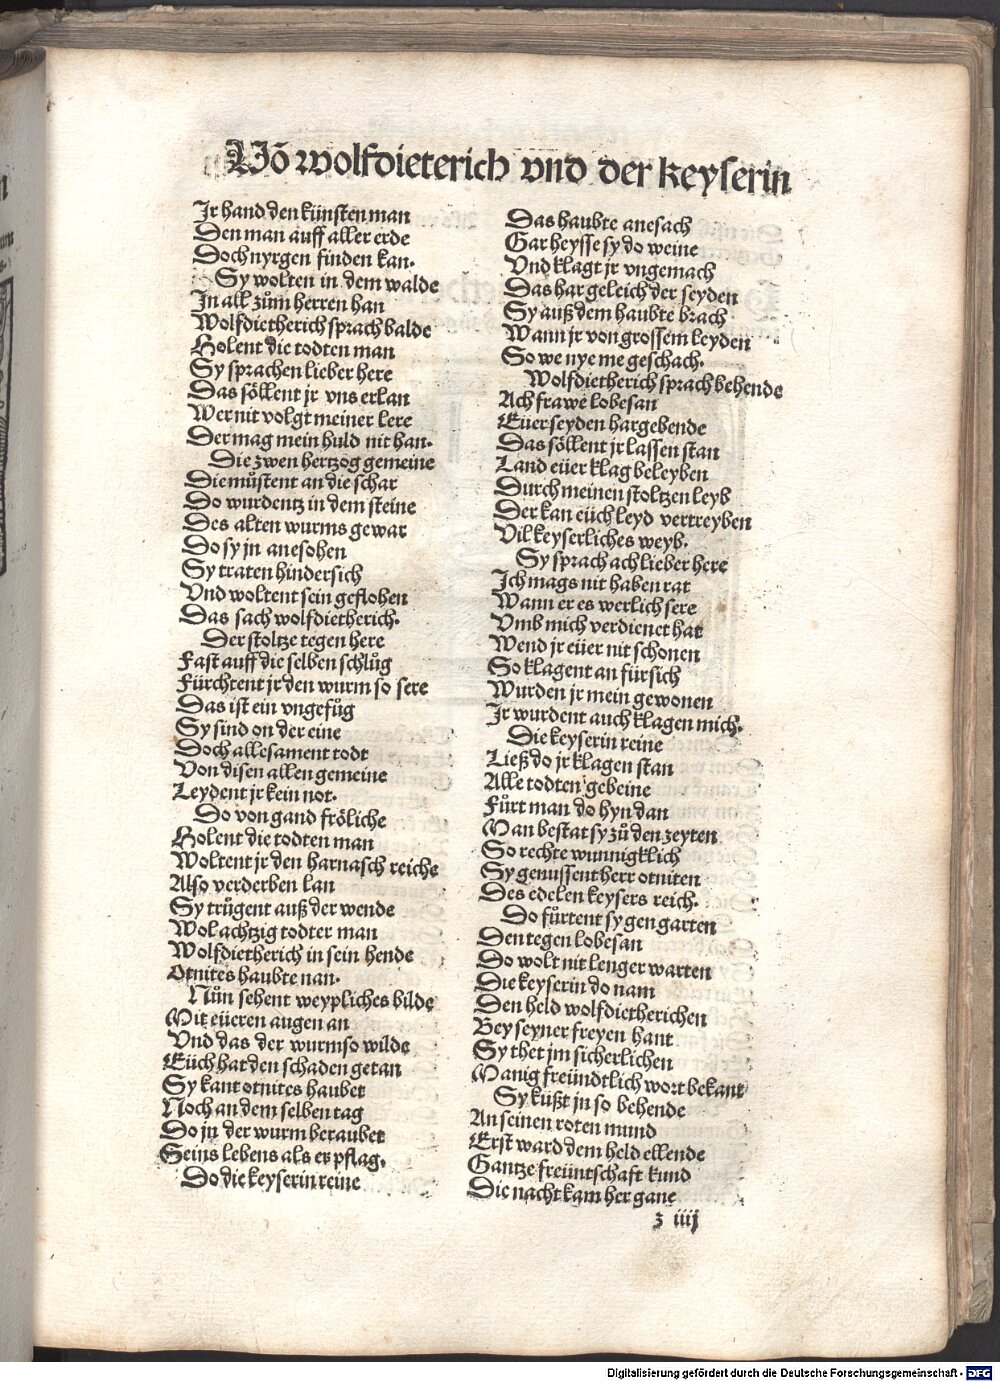 Võ wolfdieterich vnd der keyserin
Jr hand den künsten man
Den man auff aller erde
Doch nyrgen finden kan.
Sy wolten in dem walde
In all zům herren han
Wolfdietherich sprach balde
Holent die todten man
Sy sprachen lieber here
Das söllent jr vns erlan
Wer nit volgt meiner lere
Der mag mein huld nit han.
Die zwen hertzog gemeine
Die můstent an die schar
Do wurdentz in dem steine
Des alten wurms gewar
Do sy jn anesohen
Sy traten hindersich
Vnd woltent sein geflohen
Das sach wolfdietherich.
Der stoltze tegen here
Fast auff die selben schlůg
Fürchtent jr den wurm so sere
Das ist ein vngefůg
Sy sind on der eine
Doch allesament todt
Von disen allen gemeine
Leydent jr kein not.
Do von gand fröliche
Holent die todten man
Woltent jr den harnasch reiche
Also verderben lan
Sy trůgent auß der wende
Wol achtzig todter man
Wolfdietherich in sein hende
Otnites haubte nan.
Nůn sehent weypliches bilde
Mit eüeren augen an
Vnd das der wurm so wilde
Eüch hat den schaden getan
Sy kant otnites haubet
Noch an dem selben tag
Do jn der wurm beraubet
Seins lebens als er pflag.
Do die keyserin reine
Das haubte anesach
Gar heysse sy do weine
Vnd klagt jr vngemach
Das har geleich der seyden
Sy auß dem haubte brach
Wann jr von grossem leyden
So we nye me geschach.
Wolfdietherich sprach behende
Ach frawe lobesan
Eüer seyden har gebende
Das söllent jr lassen stan
Land eüer klag beleyben
Durch meinen stoltzen leyb
Der kan eüch leyd vertreyben
Vil keyserliches weyb.
Sy sprach ach lieber here
Ich mags nit haben rat
Wann er es werlich sere
Vmb mich verdienet hat
Wend jr eüer nit schonen
So klagent an für sich
Wurden jr mein gewonen
Jr wurdent auch klagen mich.
Die keyserin reine
Ließ do jr klagen stan
Alle todten gebeine
Fůrt man do hyn dan
Man bestat sy zů den zeyten
So rechte wunnigklich
Sy genussent herr otniten
Des edelen keysers reich.
Do fůrtent sy gen garten
Den tegen lobesan
Do wolt nit lenger warten
Die keyserin do nam
Den held wolfdietherichen
Bey seyner freyen hant
Sy thet jm sicherlichen
Manig freündtlich wort bekant
Sy küßt jn so behende
An seinen roten mund
Erst ward dem held ellende
Gantze freüntschaft kund
Die nacht kam her gane
z iiij
Digitalisierung gefördert durch die Deutsche Forschungsgemeinschaft - DFG